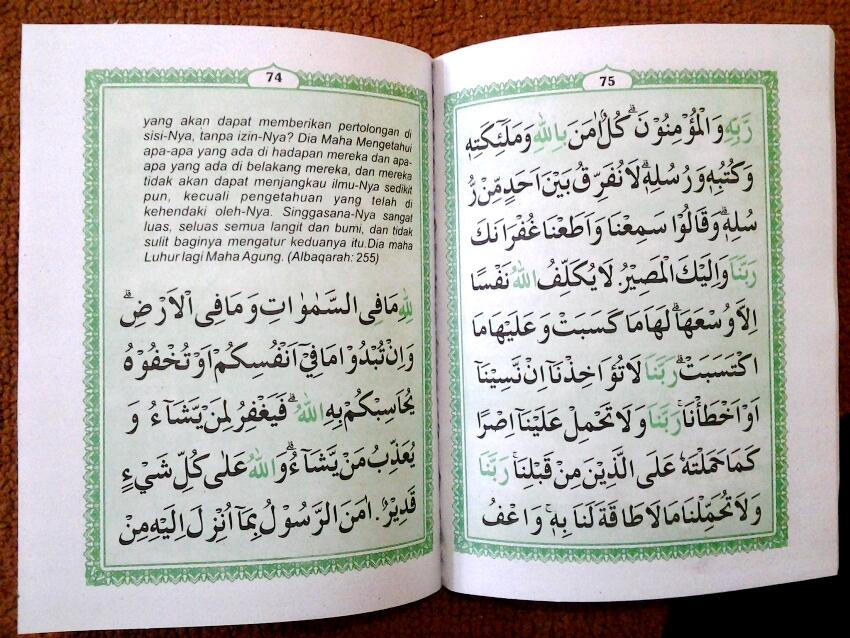 74
yang akan dapat memberikan pertolongan di
sisi-Nya, tanpa izin-Nya? Dia Maha Mengetahui
apa-apa yang ada di hadapan mereka dan apa-
apa yang ada di belakang mereka, dan mereka
tidak akan dapat menjangkau ilmu-Nya sedikit
pun, kecuali pengetahuan yang telah di
kehendaki oleh-Nya. Singgasana-Nya sangat
luas, seluas semua langit dan bumi, dan tidak
sulit baginya mengatur keduanya itu.Dia maha
Luhur lagi Maha Agung. (Albaqarah: 255)
لِلّٰهِ مَا فِى السَّمٰوٰاتِ وَمَا فِى الْاَرْضِۗ
وَاِنْ تُبْدُوْا مَا فِيْٓ اَنْفُسِكُمْ اَوْ تُخْفُوْهُ
يُحَاسِبْكُمْ بِهِ اللّٰهُۗ فَيَغْفِرُ لِمَنْ يَّشَاۤءُ وَ
يُعَذِّبُ مَنْ يَّشَاۤءُۗ وَاللّٰهُ عَلٰى كُلِّ شَيْءٍ
قَدِيْرٌ. اٰمَنَ الرَّسُوْلُ بِمَآ اُنْزِلَ اِلَيْهِ مِنْ
75
رَّبِّهٖ وَالْمُؤْمِنُوْنَۗ كُلٌّ اٰمَنَ بِاللّٰهِ وَمَلٰۤىِٕكَتِهٖ
وَكُتُبِهٖ وَرُسُلِهٖۗ لَا نُفَرِّقُ بَيْنَ اَحَدٍ مِّنْ رُّ
سُلِهٖۗ وَقَالُوْا سَمِعْنَا وَاَطَعْنَا غُفْرَانَكَ
رَبَّنَا وَاِلَيْكَ الْمَصِيْرُ. لَا يُكَلِّفُ اللّٰهُ نَفْسًا
اِلَّا وُسْعَهَاۗ لَهَا مَا كَسَبَتْ وَعَلَيْهَا مَا
اكْتَسَبَتْۗ رَبَّنَا لَا تُؤَاخِذْنَآ اِنْ نَّسِيْنَآ
اَوْ اَخْطَأْنَاۚ رَبَّنَا وَلَا تَحْمِلْ عَلَيْنَآ اِصْرًا
كَمَا حَمَلْتَهٗ عَلَى الَّذِيْنَ مِنْ قَبْلِنَاۚ رَبَّنَا
وَلَا تُحَمِّلْنَا مَا لَا طَاقَةَ لَنَا بِهٖۚ وَاعْفُ